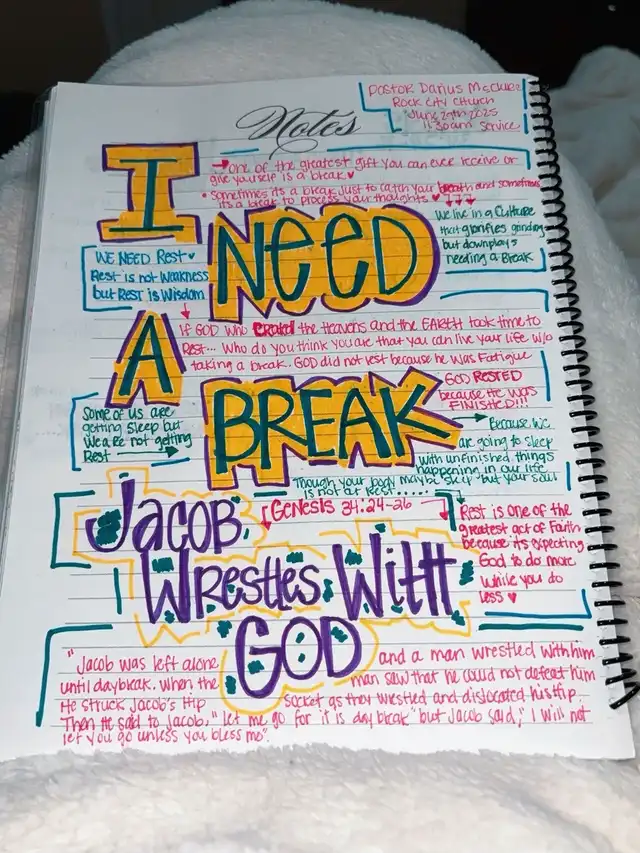 Pastor Darius McClure
Rock City Church
June 29th 2025
11:30am Service
Notes
I
→ One of the greatest gift you can ever receive or
give yourself is a break ♥
• Sometimes its a break just to catch your breath and sometimes
its a break to process your thoughts ♥
NEED
We live in a Culture
that glorifies grinding
but downplays
needing a Break
WE NEED Rest ♥
Rest is not Weakness
but REST is Wisdom
A
If GOD who Created the Heavens and the EARTH took time to
Rest... Who do you think you are that you can live your life w/o
taking a break. GOD did not rest because he was Fatigue
GOD RESTED
because He was
FINISHED!!!
BREAK
Some of us are
getting sleep but
We are not getting
Rest →
→ Because we
are going to sleep
with unfinished things
happening in our life
Though your body maybe sleep but your soul
is not at Rest.....
Jacob
Genesis 34:24-26
Wrestles With
GOD
Rest is one of the
greatest act of Faith
because its expecting
God to do more
while you do
less ♥
"Jacob was left alone and a man wrestled with him
until daybreak. When the man saw that he could not defeat him
He struck Jacob's Hip socket as they wrestled and dislocated his hip.
Then He said to Jacob, "let me go for it is day break" but Jacob said," I will not
let you go unless you bless me".